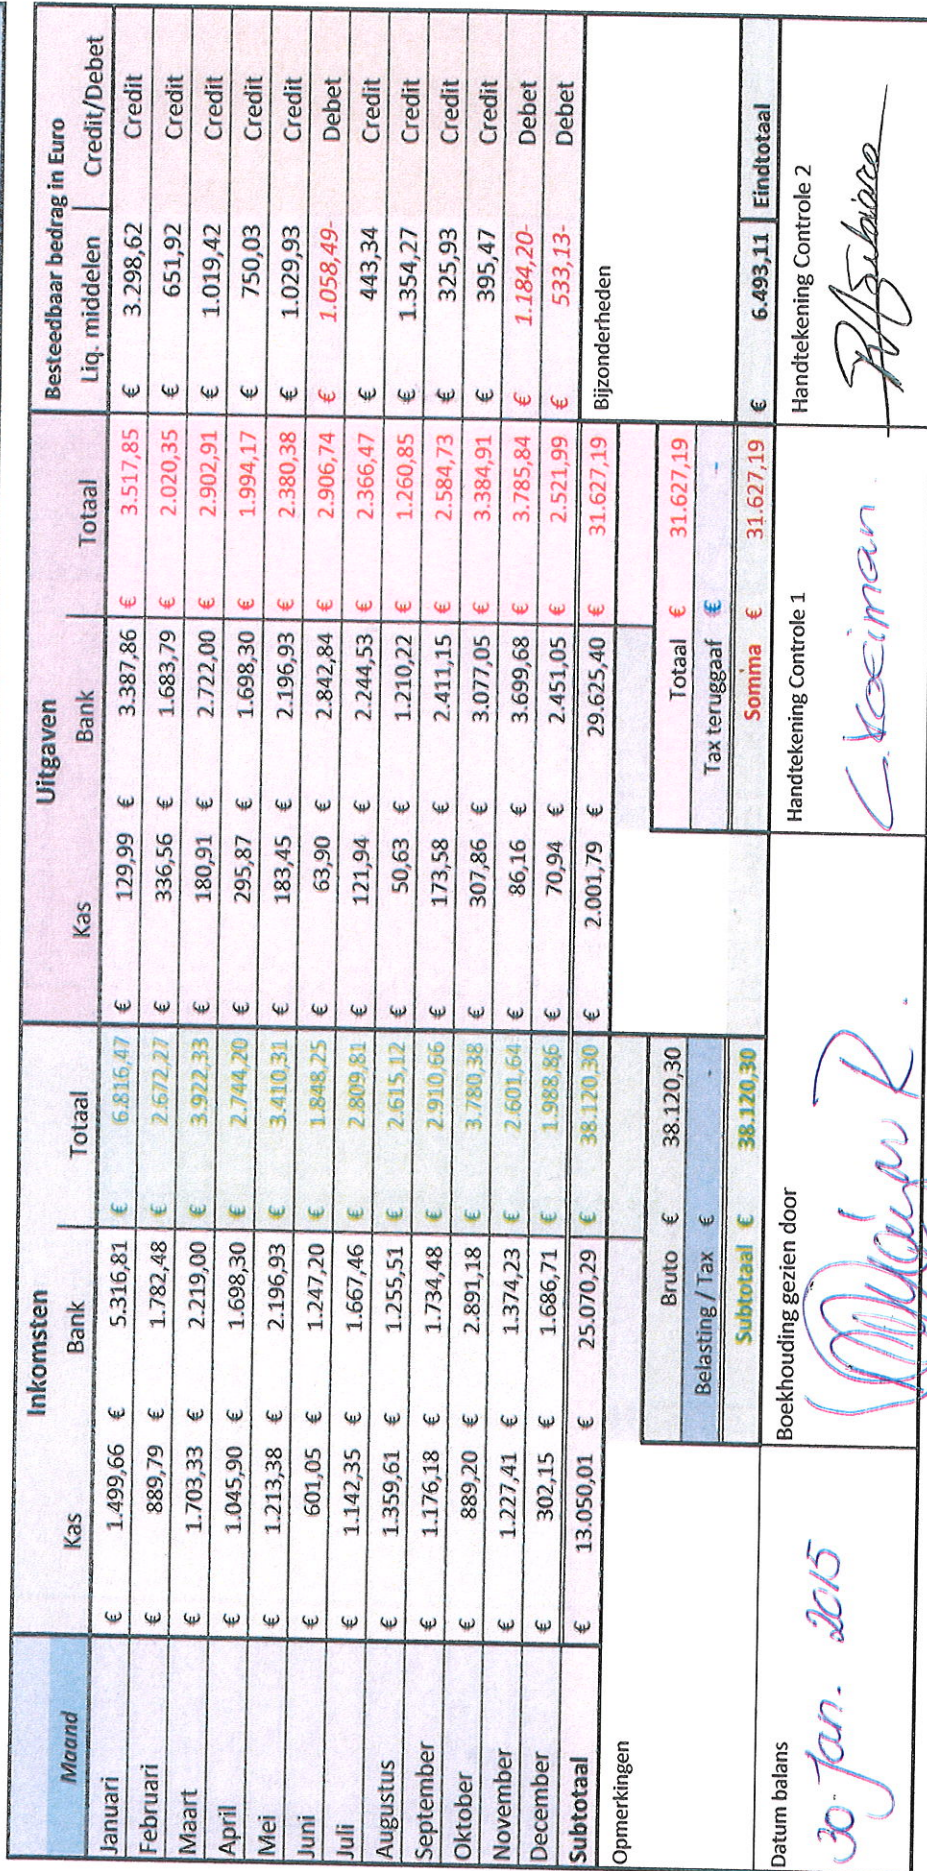 Maand Inkomsten Uitgaven Besteedbaar bedrag in Euro
Kas Bank Totaal Kas Bank Totaal Liq. middelen Credit/Debet
Januari € 1.499,66 € 5.316,81 € 6.816,47 € 129,99 € 3.387,86 € 3.517,85 € 3.298,62 Credit
Februari € 889,79 € 1.782,48 € 2.672,27 € 336,56 € 1.683,79 € 2.020,35 € 651,92 Credit
Maart € 1.703,33 € 2.219,00 € 3.922,33 € 180,91 € 2.722,00 € 2.902,91 € 1.019,42 Credit
April € 1.045,90 € 1.698,30 € 2.744,20 € 295,87 € 1.698,30 € 1.994,17 € 750,03 Credit
Mei € 1.213,38 € 2.196,93 € 3.410,31 € 183,45 € 2.196,93 € 2.380,38 € 1.029,93 Credit
Juni € 601,05 € 1.247,20 € 1.848,25 € 63,90 € 2.842,84 € 2.906,74 € 1.058,49- Debet
Juli € 1.142,35 € 1.667,46 € 2.809,81 € 121,94 € 2.244,53 € 2.366,47 € 443,34 Credit
Augustus € 1.359,61 € 1.255,51 € 2.615,12 € 50,63 € 1.210,22 € 1.260,85 € 1.354,27 Credit
September € 1.176,18 € 1.734,48 € 2.910,66 € 173,58 € 2.411,15 € 2.584,73 € 325,93 Credit
Oktober € 889,20 € 2.891,18 € 3.780,38 € 307,86 € 3.077,05 € 3.384,91 € 395,47 Credit
November € 1.227,41 € 1.374,23 € 2.601,64 € 86,16 € 3.699,68 € 3.785,84 € 1.184,20- Debet
December € 302,15 € 1.686,71 € 1.988,86 € 70,94 € 2.451,05 € 2.521,99 € 533,13- Debet
Subtotaal € 13.050,01 € 25.070,29 € 38.120,30 € 2.001,79 € 29.625,40 € 31.627,19
Opmerkingen Bijzonderheden
Bruto € 38.120,30 Totaal € 31.627,19
Belasting / Tax € - Tax teruggaaf € -
Subtotaal € 38.120,30 Somma € 31.627,19 € 6.493,11 Eindtotaal
Datum balans Boekhouding gezien door Handtekening Controle 1 Handtekening Controle 2
30 Jan. 2015